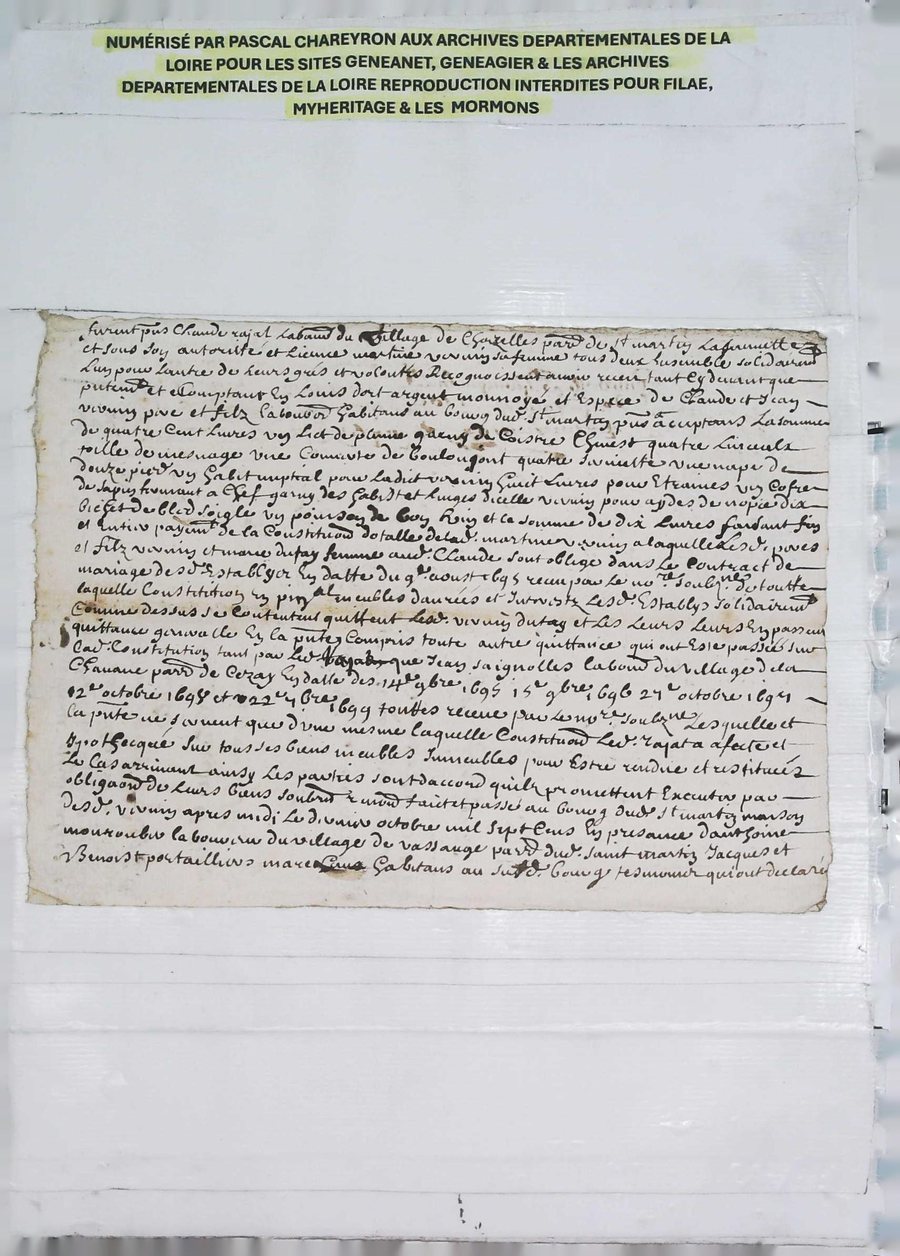 NUMÉRISÉ PAR PASCAL CHAREYRON AUX ARCHIVES DEPARTEMENTALES DE LA
LOIRE POUR LES SITES GENEANET, GENEAGIER & LES ARCHIVES
DEPARTEMENTALES DE LA LOIRE REPRODUCTION INTERDITES POUR FILAE,
MYHERITAGE & LES MORMONS
furent pns Claude rajat Labour du village de parr de st martin
et sous son autoritte et licence martine vivien sa femme tous deux Ensemble solidairemt
Lun pour Lautre de Leurs gres et volontes Recognoissent avoir receu tant Cydevant que
putemt et Comptant En Louis dort argent monnoye et Espece de Claude et Jean
vivien pere et filz labour habitans au bourg dud. st martin pns acceptans La somme
de quatre Cent Livres un Lict de plume garny de Coistre Chuest quatre Linceulx
toille de mesnage une Couverte de quatre serviette une nape de
douze un habit nuptial pour Ladict vivien huit Livres pour Etraines un Cofre
de sapin fermant a Clef garny des habist et Linges dicelle vivien pour aydes de nopce dix
bichet de bled soigle un de bon et la somme de dix Livres faisant fin
et Entier payemt de la Constituon dotalle de lad. martine vivien a laquelle Lesd. peres
et filz vivien et marie dufay femme aud. Claude sont oblige dans Le Contract de
mariage desd. Establyer En datte du aoust 1695 receu par le nore soubzne de toutte
laquelle Constitution En pnpal meubles danrées et Interestz Lesd. Establys solidairemt
Comme dessus se Contentent quittent Lesd. vivien dufay et Les Leurs En passent
quittance generalle En la pnte Compris toute autre quittance qui ont Este passée sur
lad. Constitution tant par Led. que Jean saignolles labour du village de la
Chavane parr de Cezay En datte des 14e 9bre 1695 15e 9bre 1696 27e octobre
12e octobre et 22e 1699 touttes receue par Le nore soubzne Lesquelle et
la pnte ne servent que dune mesme laquelle Constituon Led. rajat a afecte et
Ipothecqué sur tous ses biens meubles Immeubles pour Estre rendue et restituées
Le Cas arrivent ainsy Les parties sont daccord quilz promettent Executer par
obligaon de Leurs biens fait et passé au bourg dud. st martin maison
desd. vivien apres midi Le octobre mil sept Cens En presance danthoine
labour du village de vassauge parr dud. saint martin Jacques et
Benoist habitans au susd. bourg tesmoins qui ont declaré